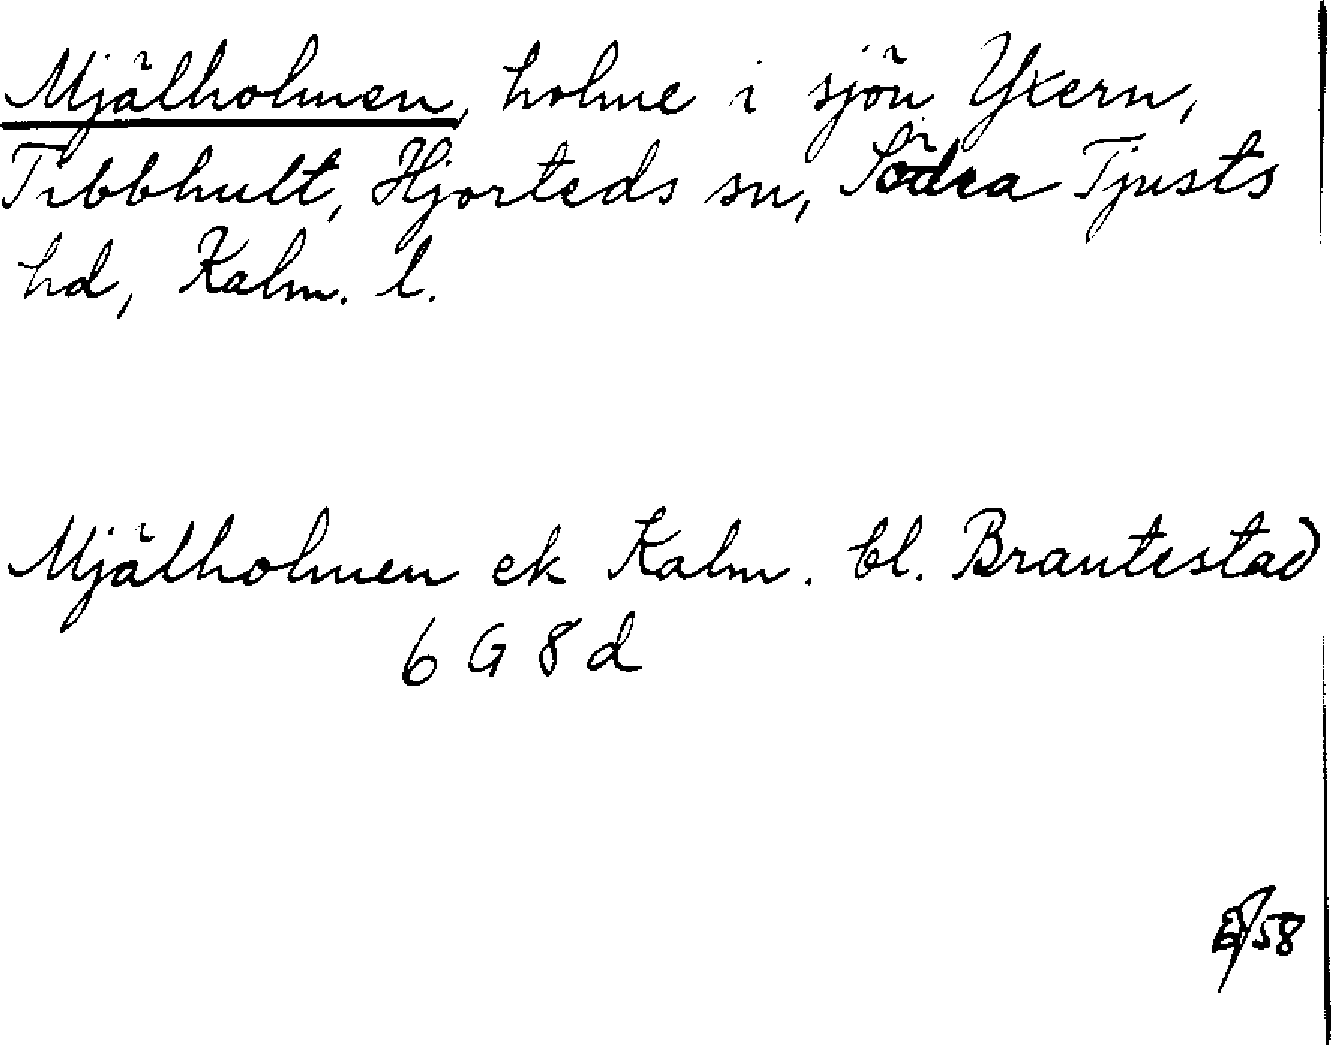 Mjälholmen, holme i sjön Yxern,
Tribbhult, Hjorteds sn, Södra Tjusts
hd, Kalm. l.
Mjälholmen ek Kalm. bl. Brantestad
6 G 8 d
/58